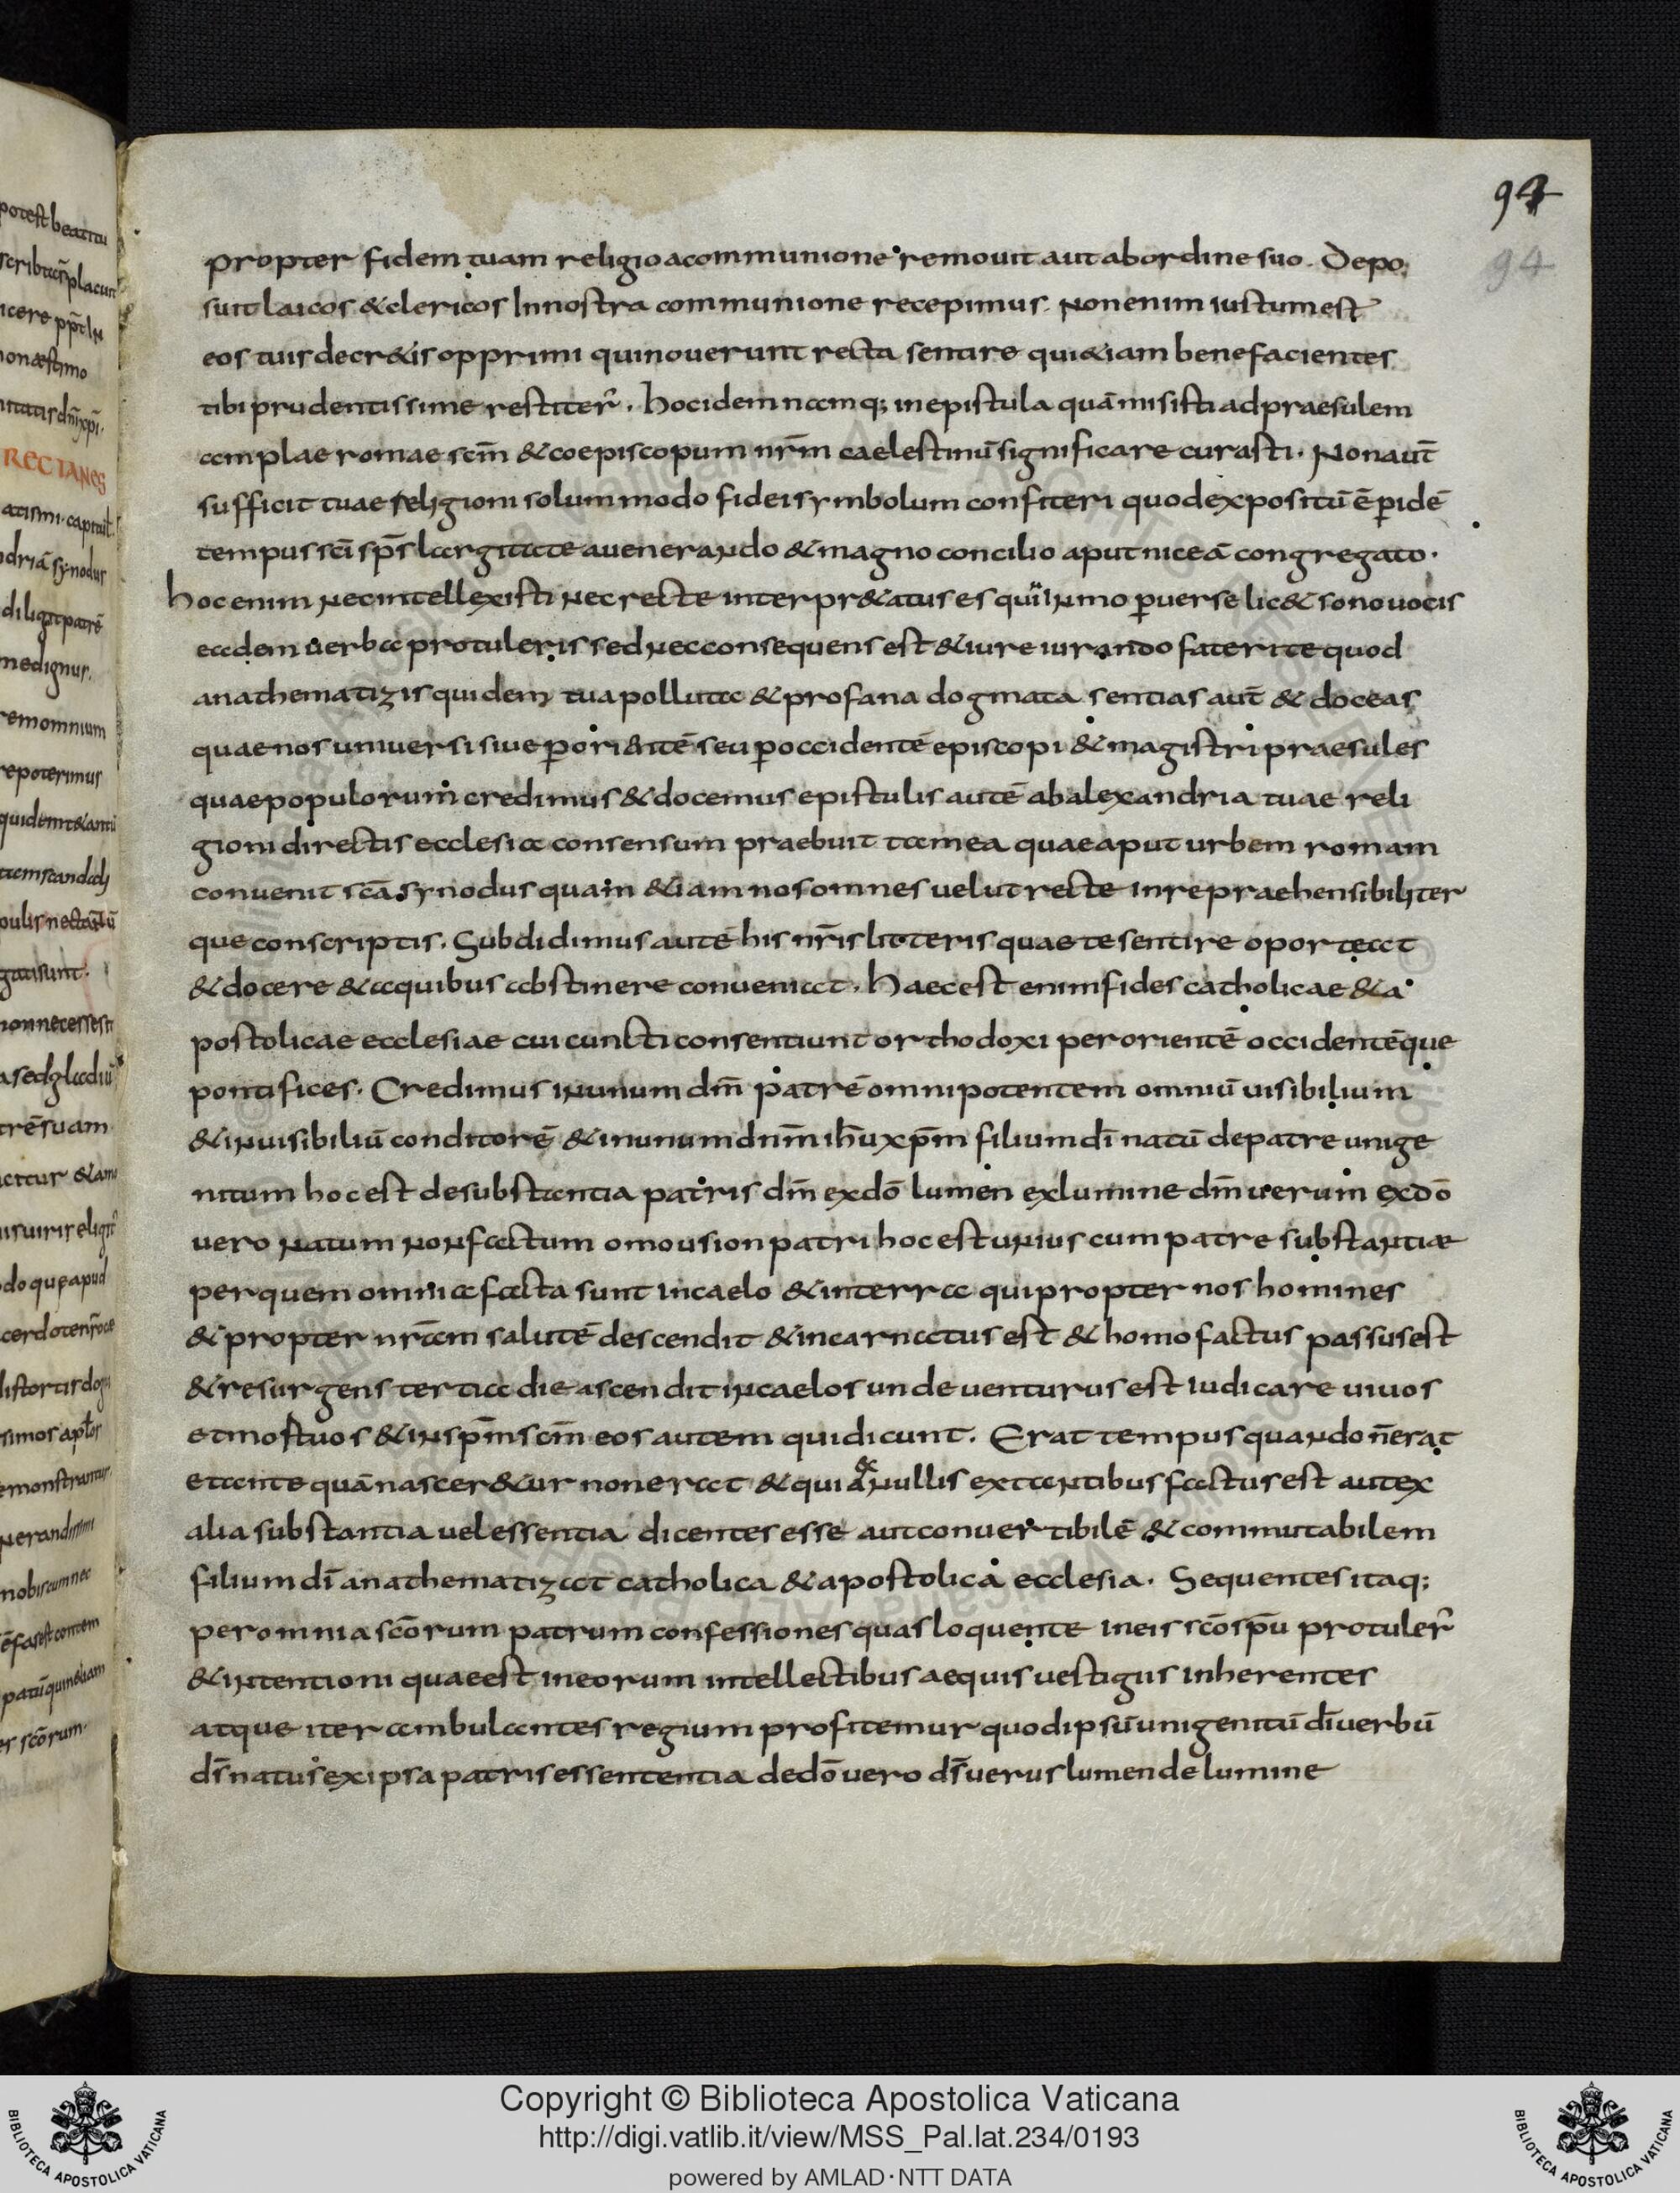 94
94
propter fidem tuam religio acommunione remouit aut abordine suo. Depo
suit laicos & clericos In nostra communione recepimus. Non enim iustum est
eos tuis decr&is opprimi qui nouerunt recta sentire qui &iam bene facientes
tibi prudentissime restiter̃. hoc idem namq; in epistula quā misisti ad praesulem
amplae romae scm̄ & coepiscopum nr̄m caelestinū significare curasti. Non aut̄
sufficit tuae religioni solum modo fidei symbolum confiteri quod expositū ē ꝑ idē
tempus sc̄i sp̄s largitate a uenerando & magno concilio aput niceā congregato.
hoc enim nec intellexisti nec recte interpr&atus es quin immo ꝑuerse lic& sono uocis
eadem uerba protuleris sed nec consequens est & iure iurando fateri te quod
anathematizis quidem tua polluta & profana dogmata sentias aut̄ & doceas
quae nos uniuersi siue ꝑ orientē seu ꝑ occidentē episcopi & magistri praesules
quae populorum credimus & docemus epistulis autē ab alexandria tuae reli
gioni directis ecclesia consensum praebuit tam ea quae aput urbem romam
conuenit sc̄a synodus quam &iam nos omnes uelut recte inrepraehensibiliter
que conscriptis. Subdidimus autē his nr̄is litteris quae te sentire oporteat
& docere & a quibus abstinere conueniat. Haec est enim fides catholicae & a
postolicae ecclesiae cui cuncti consentiunt orthodoxi per orientē occidentēque
pontifices. Credimus in unum dm̄ patrē omnipotentem omniū uisibilium
& inuisibiliū conditorē & in unum dnm̄ ih̄u xp̄m filium dī natū de patre unige
nitum hoc est de substantia patris dm̄ ex dō lumen ex lumine dm̄ uerum ex dō
uero natum non factum omousion patri hoc est unius cum patre substantiæ
per quem omnia facta sunt in caelo & in terra qui propter nos homines
& propter nr̄am salutē descendit & incarnatus est & homo factus passus est
& resurgens tertia die ascendit in caelos unde uenturus est iudicare uiuos
et mortuos & in sp̄m sc̄m eos autem qui dicunt. Erat tempus quando n̄ erat
et ante quā nascer&ur non erat & quia & nullis extantibus factus est aut ex
alia substantia uel essentia dicentes esse aut conuertibilē & commutabilem
filium dī anathematizat catholica & apostolica ecclesia. Sequentes itaq;
per omnia sc̄orum patrum confessiones quas loquente in eis sc̄o sp̄u protuler̃
& intentioni quae est in eorum intellectibus aequis uestigiis inherentes
atque iter ambulantes regium profitemur quod ipsū unigenitū dī uerbū
ds̄ natus ex ipsa patris essententia de dō uero ds̄ uerus lumen de lumine
Copyright © Biblioteca Apostolica Vaticana
http://digi.vatlib.it/view/MSS_Pal.lat.234/0193
powered by AMLAD·NTT DATA
BIBLIOTECA APOSTOLICA VATICANA
BIBLIOTECA APOSTOLICA VATICANA